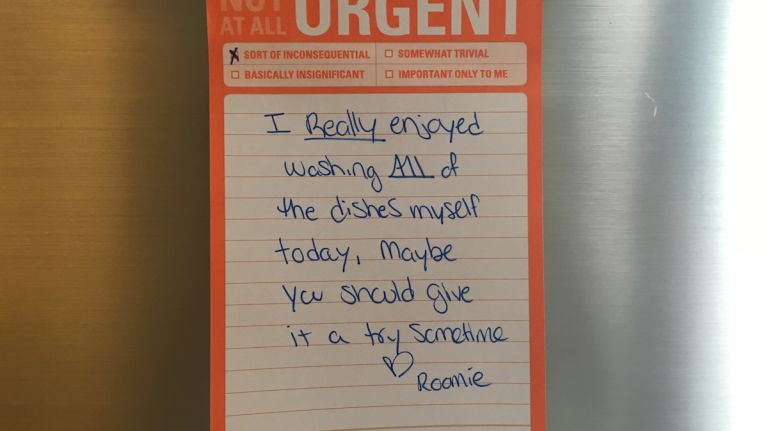 NOT
AT ALL
URGENT
X SORT OF INCONSEQUENTIAL
SOMEWHAT TRIVIAL
BASICALLY INSIGNIFICANT
IMPORTANT ONLY TO ME
I Really enjoyed
washing All of
the dishes myself
today, Maybe
you should give
it a try Sometime
Roomie